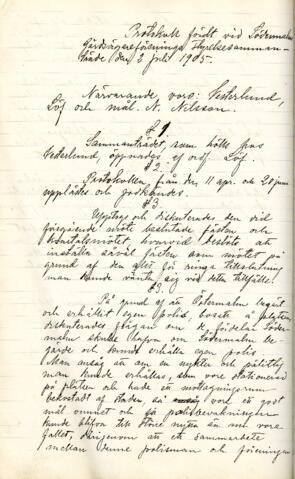 Protokoll fördt vid Södermalms
Gårdsägareförenings Styrelsesamman-
träde den 2 Juli 1905.
Närvarande voro: Vesterlund,
Löf och mål. N. Nilsson.
§ 1.
Sammanträdet, som hölls hos
Vesterlund, öppnades af ordf. Löf.
§ 2.
Protokollen från den 11 apr. och 20 juni
upplästes och godkändes.
§ 3.
Upptogs och diskuterades den vid
föregående möte beslutade festen och
kvartalsmötet, hvarvid beslöts att
inställa såväl festen som mötet på
grund af den allt för ringa tillslutning
man kunde vänta sig vid detta tillfälle.
§ 3.
På grund af att Östermalm begärt
och erhållit egen polis, bosatt å platsen,
diskuterades frågan om de fördelar Söder-
malm skulle hafva om Södermalm be-
gärde och kunde erhålla egen polis.
Man ansåg att om en nykter och pålitlig
man kunde erhållas som vore stationerad
på platsen och hade ett mottagningsrum
bekostadt af staden, så vore ett godt
mål vunnet och så polisbevakningen
kunde blifva till större nytta än nu vore
fallet, därigenom att ett samarbete
mellan denne polisman och föreningen